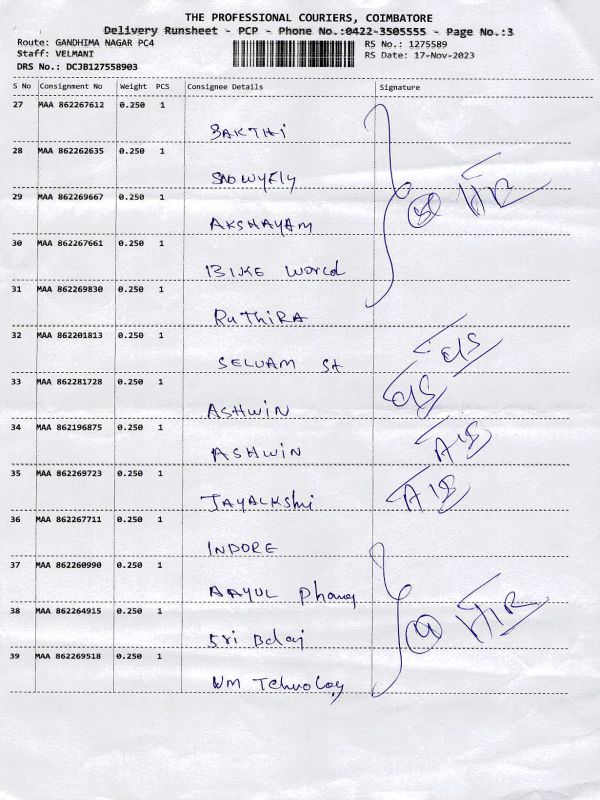 THE PROFESSIONAL COURIERS, COIMBATORE
Delivery Runsheet - PCP - Phone No.:0422-3505555 - Page No.:3
Route: GANDHIMA NAGAR PC4
RS No.: 1275589
Staff: VELMANI
RS Date: 17-Nov-2023
DRS No.: DCJB127558903
S No Consignment No Weight PCS Consignee Details Signature
27 MAA 862267612 0.250 1
SAKTHI
28 MAA 862262635 0.250 1
SNOWYFLY
29 MAA 862269667 0.250 1
AKSHAYAM
30 MAA 862267661 0.250 1
BIKE World
31 MAA 862269830 0.250 1
RuThiRA
32 MAA 862201813 0.250 1
SELVAM St
33 MAA 862281728 0.250 1
ASHWIN
34 MAA 862196875 0.250 1
ASHWIN
35 MAA 862269723 0.250 1
JAYALKshmi
36 MAA 862267711 0.250 1
INDORE
37 MAA 862260990 0.250 1
AAYUL
38 MAA 862264915 0.250 1
Sri Balaj
39 MAA 862269518 0.250 1